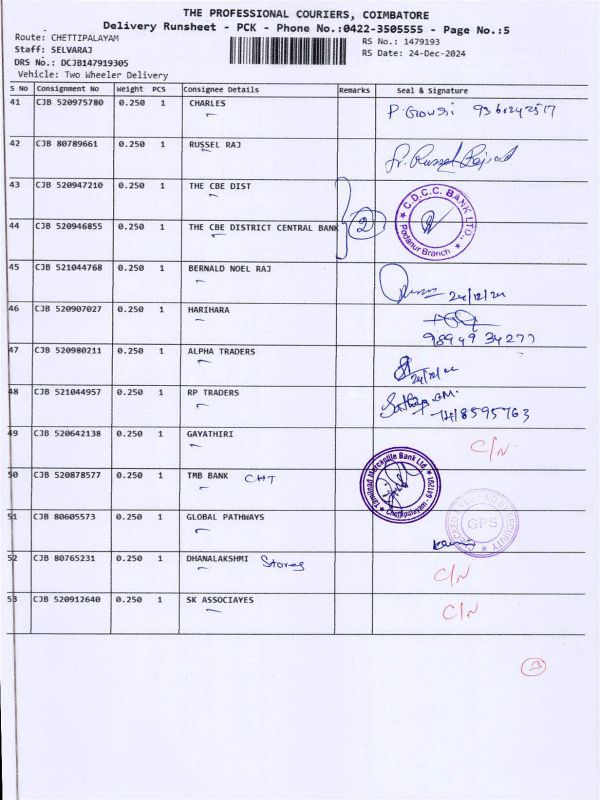 THE PROFESSIONAL COURIERS, COIMBATORE
Delivery Runsheet - PCK - Phone No.:0422-3505555 - Page No.:5
Route: CHETTIPALAYAM
RS No.: 1479193
Staff: SELVARAJ
RS Date: 24-Dec-2024
DRS No.: DCJB147919305
Vehicle: Two Wheeler Delivery
S No Consignment No Weight PCS Consignee Details Remarks Seal & Signature
41 CJB 520975780 0.250 1 CHARLES
42 CJB 80789661 0.250 1 RUSSEL RAJ
43 CJB 520947210 0.250 1 THE CBE DIST
2
C.D.C.C. BANK LTD.,
Podanur Branch
44 CJB 520946855 0.250 1 THE CBE DISTRICT CENTRAL BANK
45 CJB 521044768 0.250 1 BERNALD NOEL RAJ
24/12/24
46 CJB 520907027 0.250 1 HARIHARA
98949 34277
47 CJB 520980211 0.250 1 ALPHA TRADERS
24/12/24
48 CJB 521044957 0.250 1 RP TRADERS
49 CJB 520642138 0.250 1 GAYATHIRI C/N
50 CJB 520878577 0.250 1 TMB BANK CHT
Tamilnad Mercantile Bank Ltd.
Chettipalayam - 641201
51 CJB 80605573 0.250 1 GLOBAL PATHWAYS
GPS
52 CJB 80765231 0.250 1 DHANALAKSHMI Stores C/N
53 CJB 520912640 0.250 1 SK ASSOCIAYES C/N